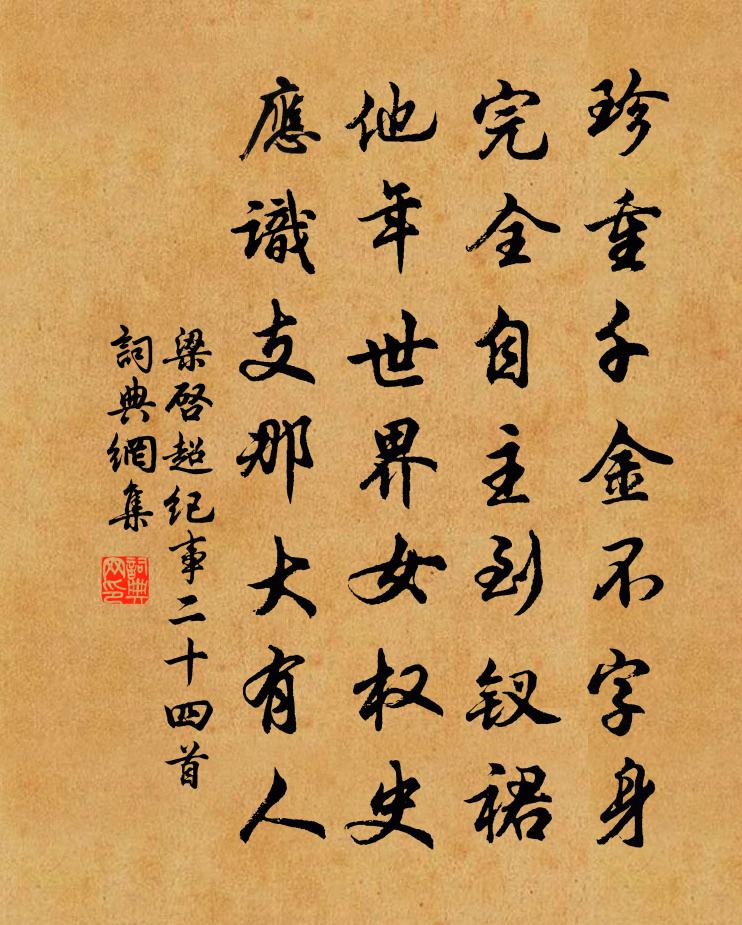 珍重千金不字身
完全自主到釵裙
他年世界女权史
應識支那大有人
梁啓超纪事二十四首
詞典網集
詞典网印